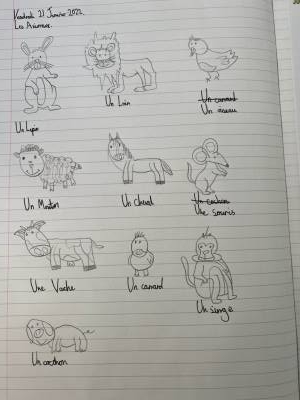 Vendredi 21 Janvier 2022.
Les Animaux.
Un Lapin
Un Lion
Un canard
Un oiseau
Un Mouton
Un cheval
Un cochon
Une souris
Une Vache
Un canard
Un singe
Un cochon